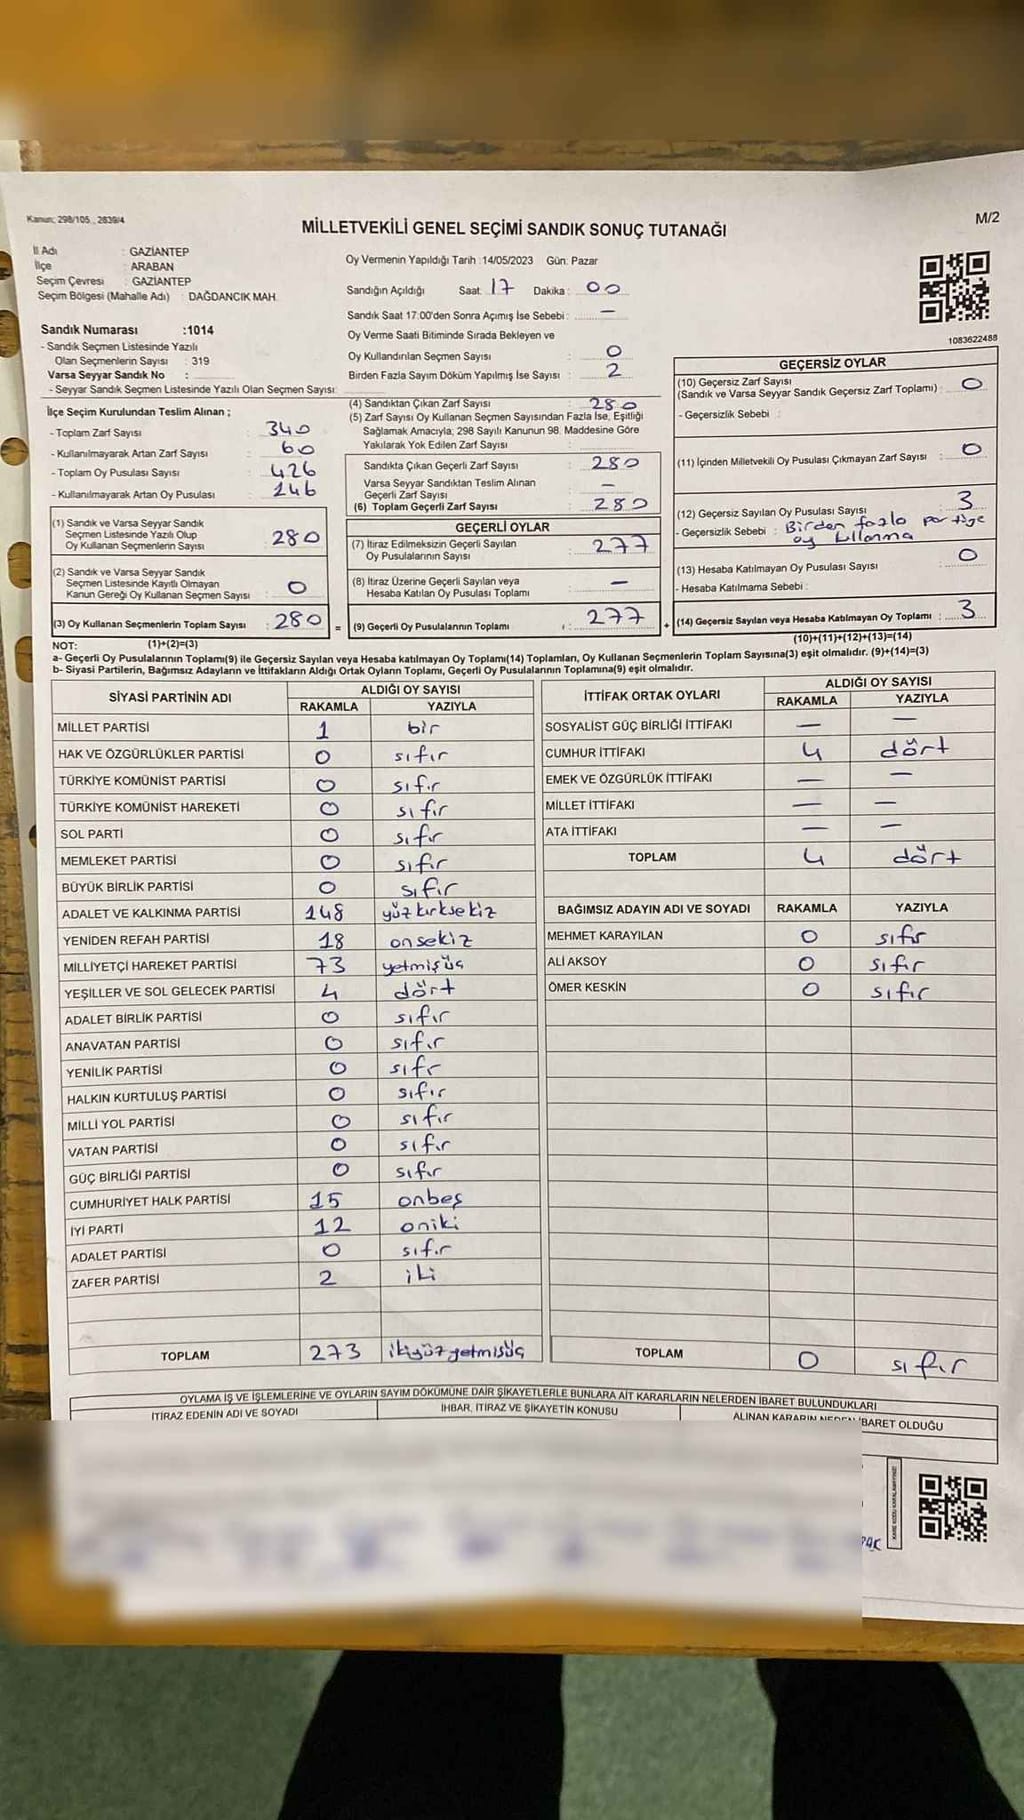 Kanun: 298/105., 2839/4
MİLLETVEKİLİ GENEL SEÇİMİ SANDIK SONUÇ TUTANAĞI
M/2
İl Adı : GAZİANTEP
İlçe : ARABAN
Seçim Çevresi : GAZİANTEP
Seçim Bölgesi (Mahalle Adı) : DAĞDANCIK MAH.
Sandık Numarası :1014
- Sandık Seçmen Listesinde Yazılı
Olan Seçmenlerin Sayısı : 319
Varsa Seyyar Sandık No :
- Seyyar Sandık Seçmen Listesinde Yazılı Olan Seçmen Sayısı:
Oy Vermenin Yapıldığı Tarih :14/05/2023 Gün: Pazar
Sandığın Açıldığı Saat: 17 Dakika : 00
Sandık Saat 17:00'den Sonra Açımış İse Sebebi : —
Oy Verme Saati Bitiminde Sırada Bekleyen ve
Oy Kullandırılan Seçmen Sayısı : 0
Birden Fazla Sayım Döküm Yapılmış İse Sayısı : 2
1083622488
İlçe Seçim Kurulundan Teslim Alınan ;
- Toplam Zarf Sayısı : 340
- Kullanılmayarak Artan Zarf Sayısı : 60
- Toplam Oy Pusulası Sayısı : 426
- Kullanılmayarak Artan Oy Pusulası : 146
(1) Sandık ve Varsa Seyyar Sandık
Seçmen Listesinde Yazılı Olup
Oy Kullanan Seçmenlerin Sayısı : 280
(2) Sandık ve Varsa Seyyar Sandık
Seçmen Listesinde Kayıtlı Olmayan
Kanun Gereği Oy Kullanan Seçmen Sayısı : 0
(3) Oy Kullanan Seçmenlerin Toplam Sayısı : 280 =
(4) Sandıktan Çıkan Zarf Sayısı : 280
(5) Zarf Sayısı Oy Kullanan Seçmen Sayısından Fazla İse, Eşitliği
Sağlamak Amacıyla, 298 Sayılı Kanunun 98. Maddesine Göre
Yakılarak Yok Edilen Zarf Sayısı :
Sandıkta Çıkan Geçerli Zarf Sayısı : 280
Varsa Seyyar Sandıktan Teslim Alınan
Geçerli Zarf Sayısı : —
(6) Toplam Geçerli Zarf Sayısı : 280
GEÇERLİ OYLAR
(7) İtiraz Edilmeksizin Geçerli Sayılan
Oy Pusulalarının Sayısı : 277
(8) İtiraz Üzerine Geçerli Sayılan veya
Hesaba Katılan Oy Pusulası Toplamı : —
(9) Geçerli Oy Pusulalarının Toplamı : 277 +
GEÇERSİZ OYLAR
(10) Geçersiz Zarf Sayısı
(Sandık ve Varsa Seyyar Sandık Geçersiz Zarf Toplamı) : 0
- Geçersizlik Sebebi :
(11) İçinden Milletvekili Oy Pusulası Çıkmayan Zarf Sayısı : 0
(12) Geçersiz Sayılan Oy Pusulası Sayısı : 3
- Geçersizlik Sebebi : Birden fazla partiye
oy kullanma
(13) Hesaba Katılmayan Oy Pusulası Sayısı : 0
- Hesaba Katılmama Sebebi :
(14) Geçersiz Sayılan veya Hesaba Katılmayan Oy Toplamı : 3
NOT: (1)+(2)=(3)
(10)+(11)+(12)+(13)=(14)
a- Geçerli Oy Pusulalarının Toplamı(9) ile Geçersiz Sayılan veya Hesaba katılmayan Oy Toplamı(14) Toplamları, Oy Kullanan Seçmenlerin Toplam Sayısına(3) eşit olmalıdır. (9)+(14)=(3)
b- Siyasi Partilerin, Bağımsız Adayların ve İttifakların Aldığı Ortak Oyların Toplamı, Geçerli Oy Pusulalarının Toplamına(9) eşit olmalıdır.
SİYASİ PARTİNİN ADI ALDIĞI OY SAYISI
RAKAMLA YAZIYLA
MİLLET PARTİSİ 1 bir
HAK VE ÖZGÜRLÜKLER PARTİSİ 0 sıfır
TÜRKİYE KOMÜNİST PARTİSİ 0 sıfır
TÜRKİYE KOMÜNİST HAREKETİ 0 sıfır
SOL PARTİ 0 sıfır
MEMLEKET PARTİSİ 0 sıfır
BÜYÜK BİRLİK PARTİSİ 0 sıfır
ADALET VE KALKINMA PARTİSİ 148 yüzkırksekiz
YENİDEN REFAH PARTİSİ 18 onsekiz
MİLLİYETÇİ HAREKET PARTİSİ 73 yetmişüç
YEŞİLLER VE SOL GELECEK PARTİSİ 4 dört
ADALET BİRLİK PARTİSİ 0 sıfır
ANAVATAN PARTİSİ 0 sıfır
YENİLİK PARTİSİ 0 sıfr
HALKIN KURTULUŞ PARTİSİ 0 sıfır
MİLLİ YOL PARTİSİ 0 sıfır
VATAN PARTİSİ 0 sıfır
GÜÇ BİRLİĞİ PARTİSİ 0 sıfır
CUMHURİYET HALK PARTİSİ 15 onbeş
İYİ PARTİ 12 oniki
ADALET PARTİSİ 0 sıfır
ZAFER PARTİSİ 2 iki
TOPLAM 273 ikiyüzyetmişüç
İTTİFAK ORTAK OYLARI ALDIĞI OY SAYISI
RAKAMLA YAZIYLA
SOSYALİST GÜÇ BİRLİĞİ İTTİFAKI — —
CUMHUR İTTİFAKI 4 dört
EMEK VE ÖZGÜRLÜK İTTİFAKI — —
MİLLET İTTİFAKI — —
ATA İTTİFAKI — —
TOPLAM 4 dört
BAĞIMSIZ ADAYIN ADI VE SOYADI RAKAMLA YAZIYLA
MEHMET KARAYILAN 0 sıfır
ALİ AKSOY 0 sıfır
ÖMER KESKİN 0 sıfır
TOPLAM 0 sıfır
OYLAMA İŞ VE İŞLEMLERİNE VE OYLARIN SAYIM DÖKÜMÜNE DAİR ŞİKAYETLERLE BUNLARA AİT KARARLARIN NELERDEN İBARET BULUNDUKLARI
İTİRAZ EDENİN ADI VE SOYADI İHBAR, İTİRAZ VE ŞİKAYETİN KONUSU ALINAN KARARIN NEDEN İBARET OLDUĞU